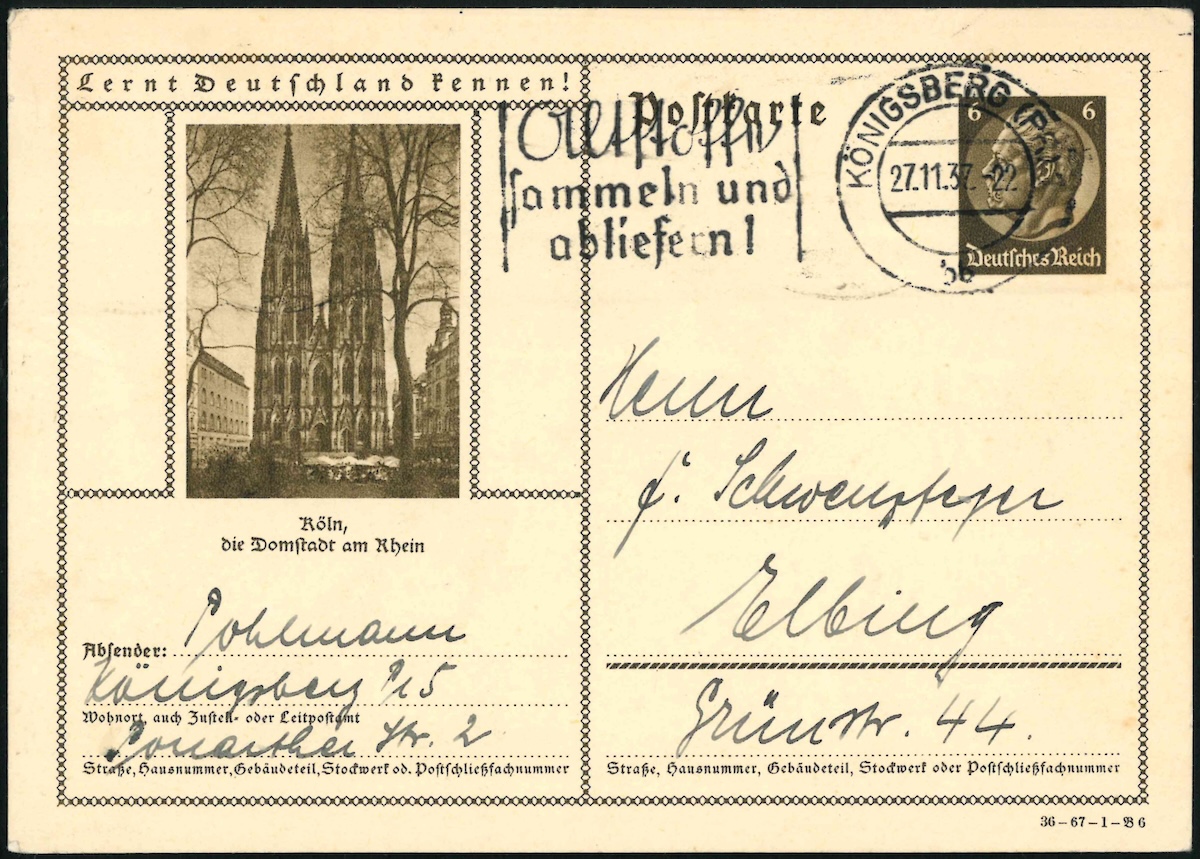 Lernt Deutschland kennen!
Köln,
die Domstadt am Rhein
Absender: Pohlmann
Königsberg Pr 5
Wohnort, auch Zustell- oder Leitpostamt
Ponarther Str. 2
Straße, Hausnummer, Gebäudeteil, Stockwerk od. Postschließfachnummer
Postkarte
Altstoffe
sammeln und
abliefern!
KÖNIGSBERG (PR)
27.11.37.-22
5b
6 6
Deutsches Reich
Herrn
Elbing
Grünstr. 44.
Straße, Hausnummer, Gebäudeteil, Stockwerk oder Postschließfachnummer
36-67-1-B 6